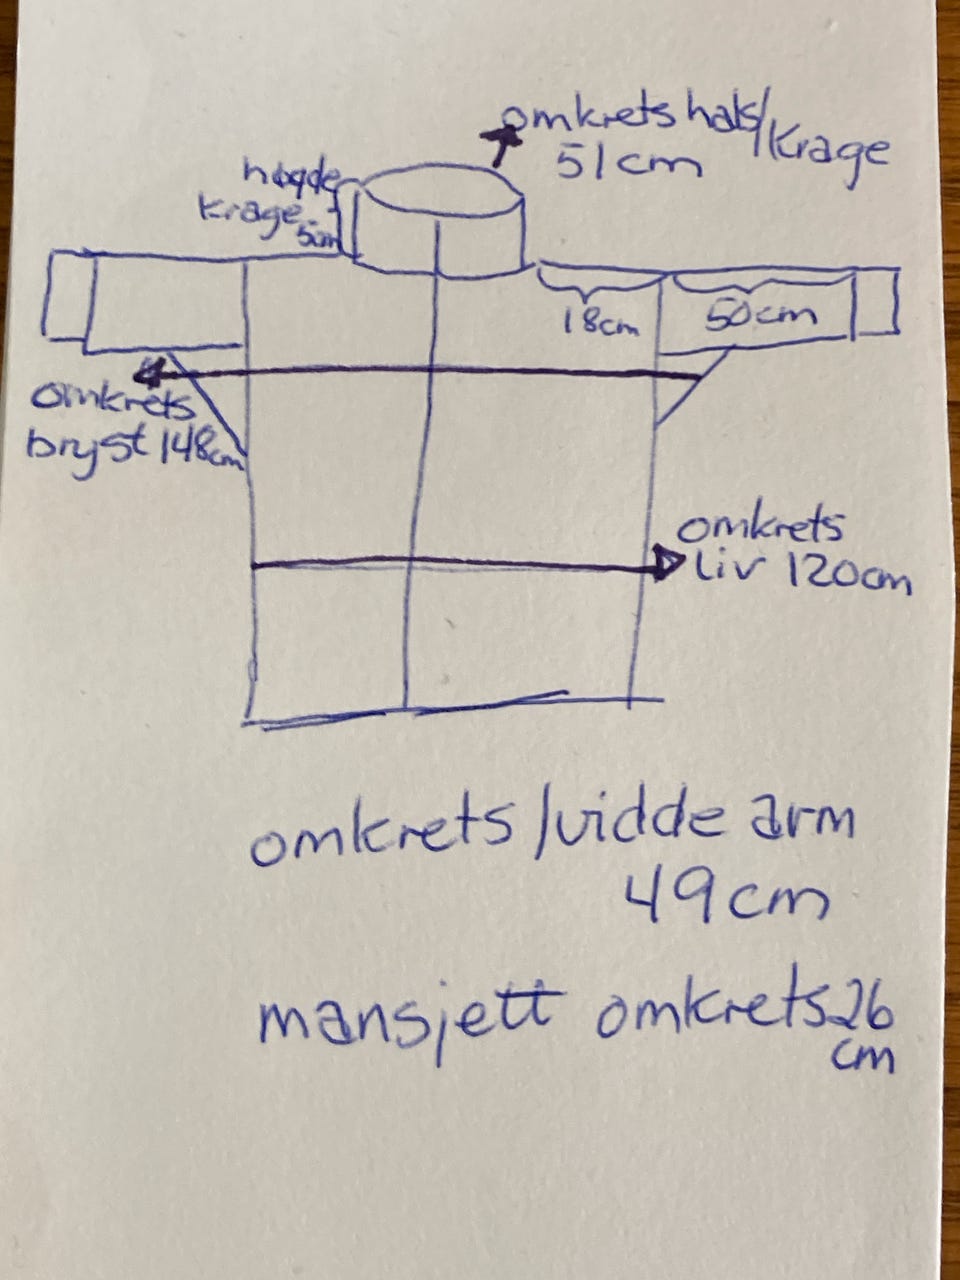 omkrets hals/
krage
51cm
høgde
krage
5cm
18cm
50cm
omkrets
bryst 148cm
omkrets
liv 120cm
omkrets/vidde arm
49cm
mansjett omkrets 26
cm